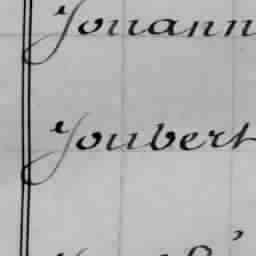 Jouann
Joubert